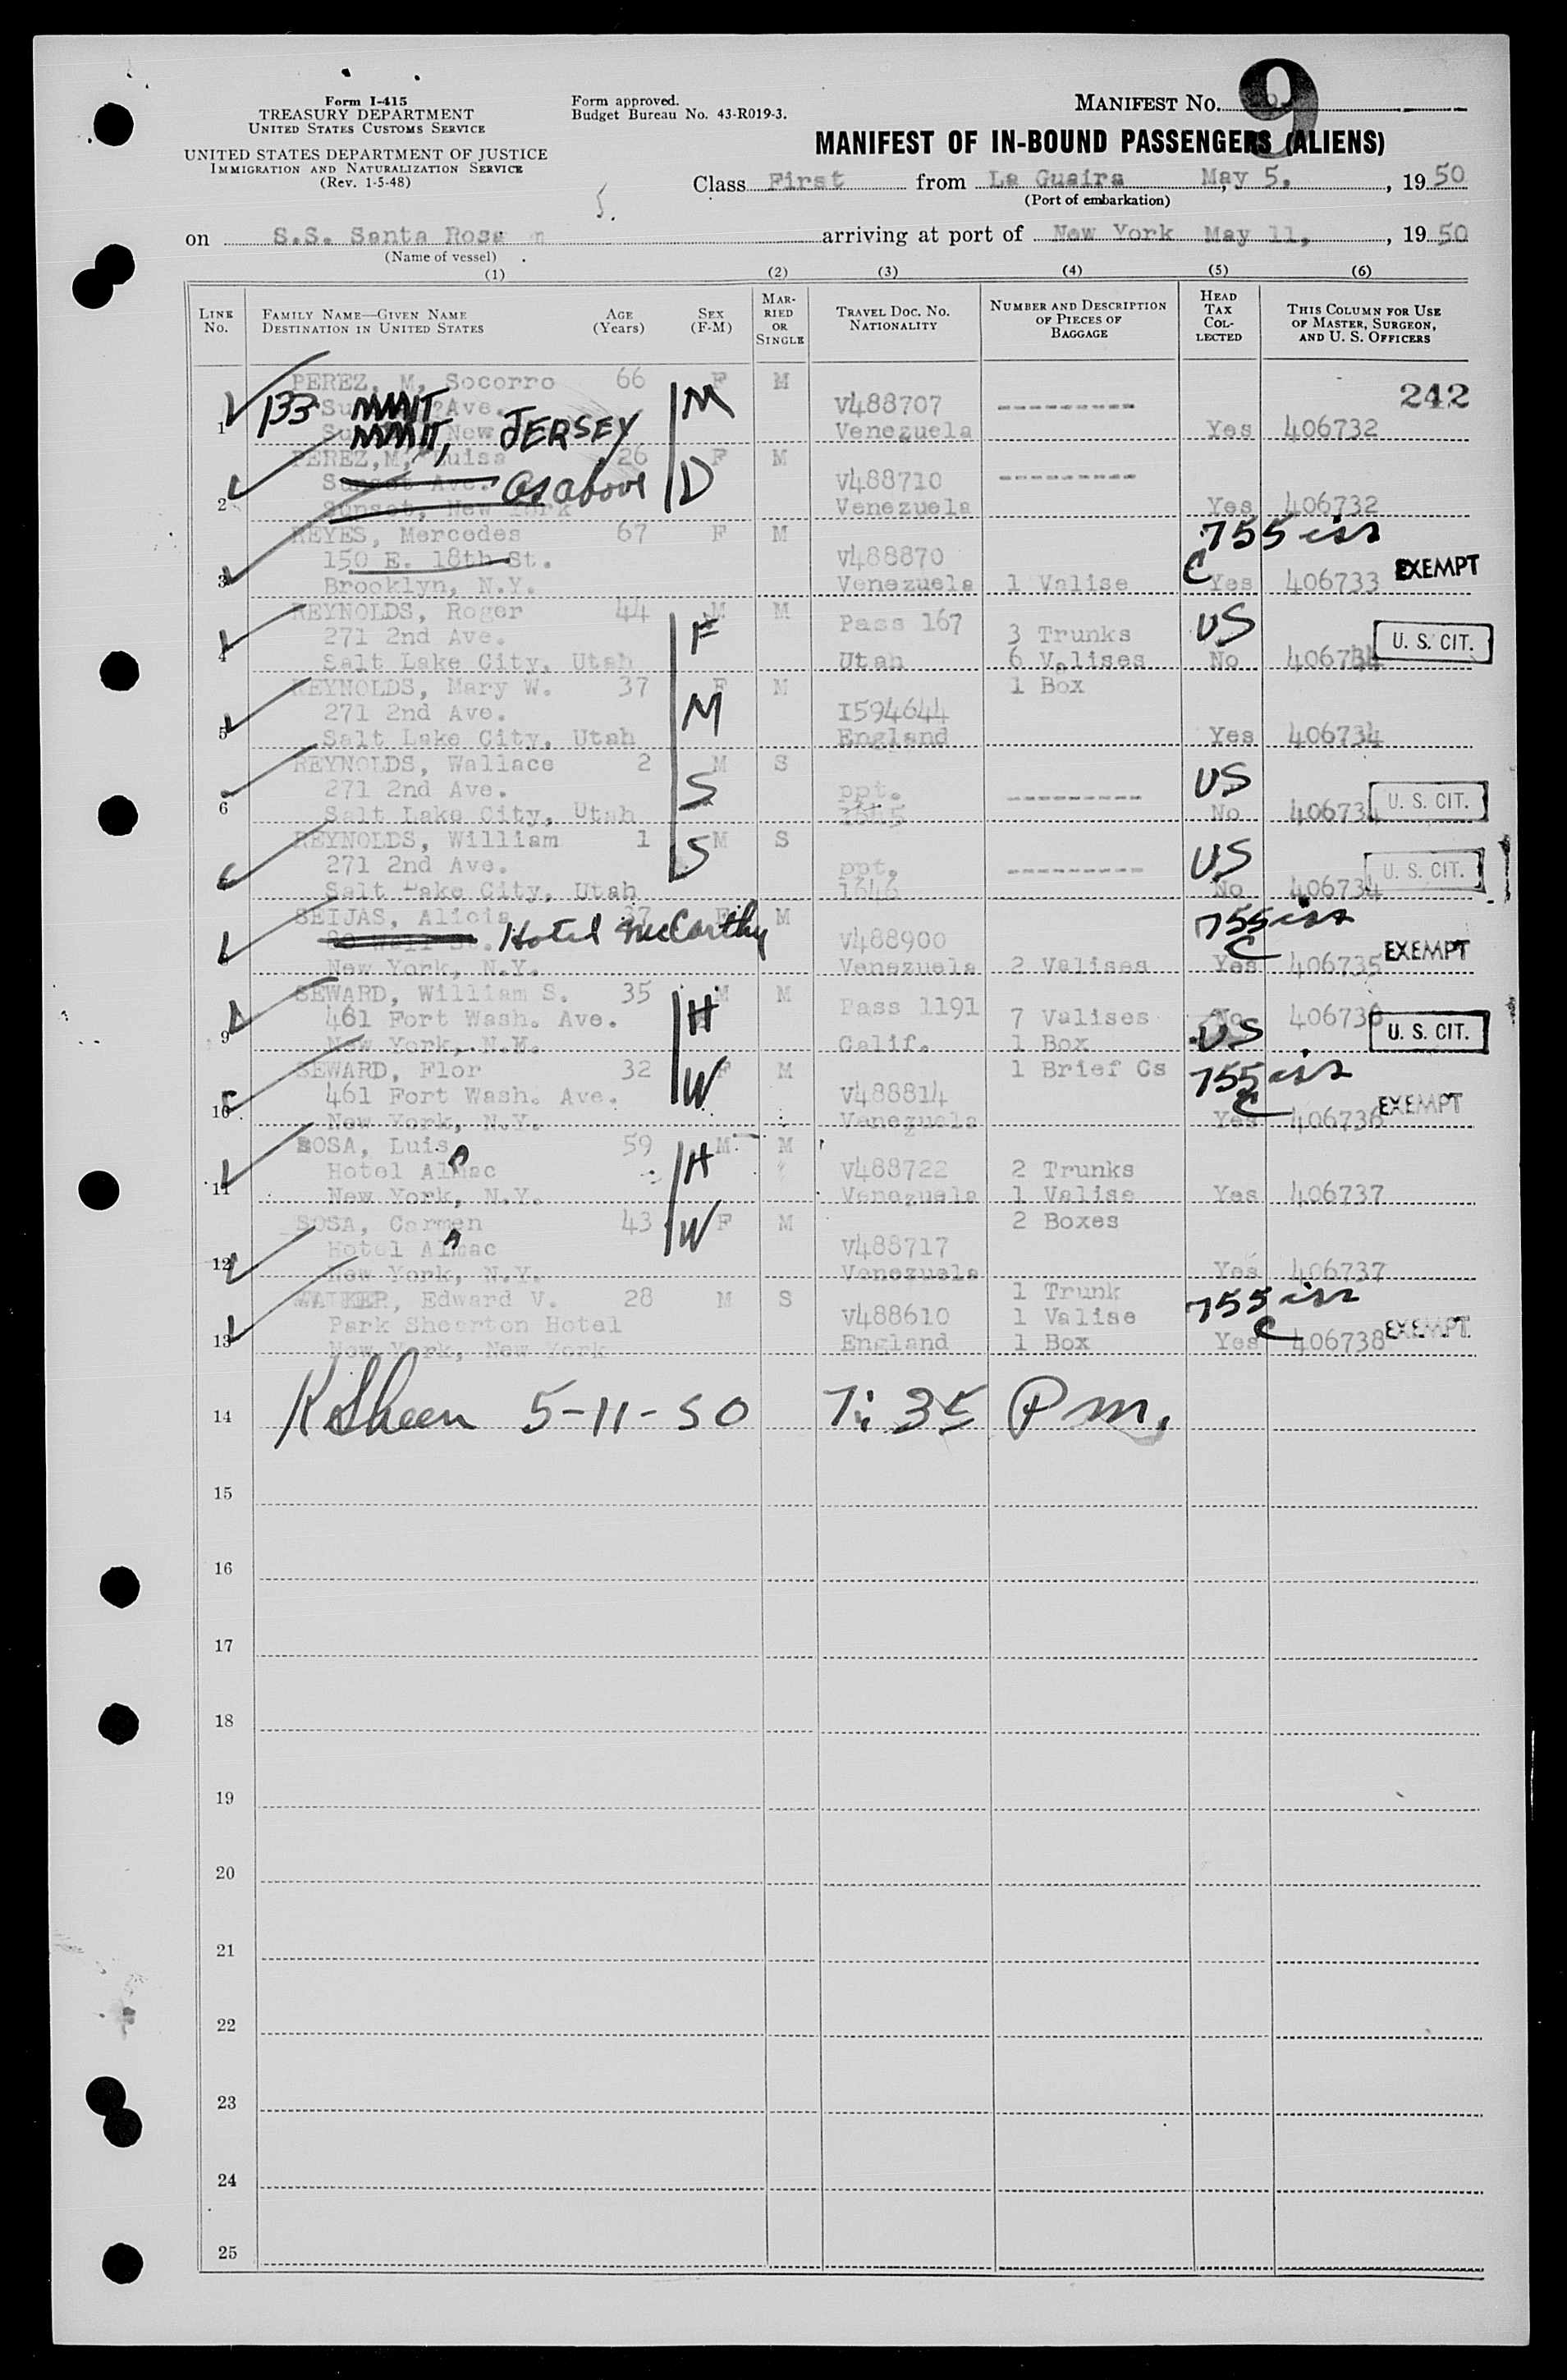 Form I-415
TREASURY DEPARTMENT
UNITED STATES CUSTOMS SERVICE
UNITED STATES DEPARTMENT OF JUSTICE
IMMIGRATION AND NATURALIZATION SERVICE
(Rev. 1-5-48)
Form approved.
Budget Bureau No. 43-R019-3.
MANIFEST No. 9
MANIFEST OF IN-BOUND PASSENGERS (ALIENS)
Class First from La Guaira May 5, , 1950
(Port of embarkation)
on S.S. Santa Rosa arriving at port of New York May 11, , 1950
(Name of vessel)
(1) (2) (3) (4) (5) (6)
LINE No. FAMILY NAME—GIVEN NAME DESTINATION IN UNITED STATES AGE (Years) SEX (F-M) MARRIED OR SINGLE TRAVEL DOC. No. NATIONALITY NUMBER AND DESCRIPTION OF PIECES OF BAGGAGE HEAD TAX COLLECTED THIS COLUMN FOR USE OF MASTER, SURGEON, AND U. S. OFFICERS
PEREZ, M. Socorro 66 F M
242
133 Ave. M V488707 ---------
1 New JERSEY Venezuela Yes 406732
PEREZ, M, Luisa 26 F M
Sunset Ave. as above D V488710 ---------
2 Sunset, New York Venezuela Yes 406732
REYES, Mercedes 67 F M 755 iss
150 E. 18th St. V488870
3 Brooklyn, N.Y. Venezuela 1 Valise C Yes 406733 EXEMPT
REYNOLDS, Roger 44 M M Pass 167 US
271 2nd Ave. F 3 Trunks U. S. CIT.
4 Salt Lake City, Utah Utah 6 Valises No 406734
REYNOLDS, Mary W. 37 F M 1 Box
271 2nd Ave. M I594644
5 Salt Lake City, Utah England Yes 406734
REYNOLDS, Wallace 2 M S US
271 2nd Ave. S ppt. --------- U. S. CIT.
6 Salt Lake City, Utah 1645 No 406734
REYNOLDS, William 1 M S US
271 2nd Ave. S ppt. --------- U. S. CIT.
7 Salt Lake City, Utah 1646 No 406734
SEIJAS, Alicia 37 F M 755 iss
Hotel McCarthy V488900 C EXEMPT
8 New York, N.Y. Venezuela 2 Valises Yes 406735
SEWARD, William S. 35 M M Pass 1191 No 406736
461 Fort Wash. Ave. H 7 Valises US U. S. CIT.
9 New York, N.Y. Calif. 1 Box
SEWARD, Flor 32 F M 1 Brief Cs 755 iss
461 Fort Wash. Ave. W V488814 C EXEMPT
10 New York, N.Y. Venezuela Yes 406736
SOSA, Luis 59 M M
Hotel Almac A H V488722 2 Trunks
11 New York, N.Y. Venezuela 1 Valise Yes 406737
SOSA, Carmen 43 F M 2 Boxes
Hotel Almac A W V488717
12 New York, N.Y. Venezuela Yes 406737
WALKER, Edward V. 28 M S 1 Trunk 755 iss
Park Sheerton Hotel V488610 1 Valise C EXEMPT
13 New York, New York England 1 Box Yes 406738
14 K Sheen 5-11-50 7:35 Pm.
15
16
17
18
19
20
21
22
23
24
25